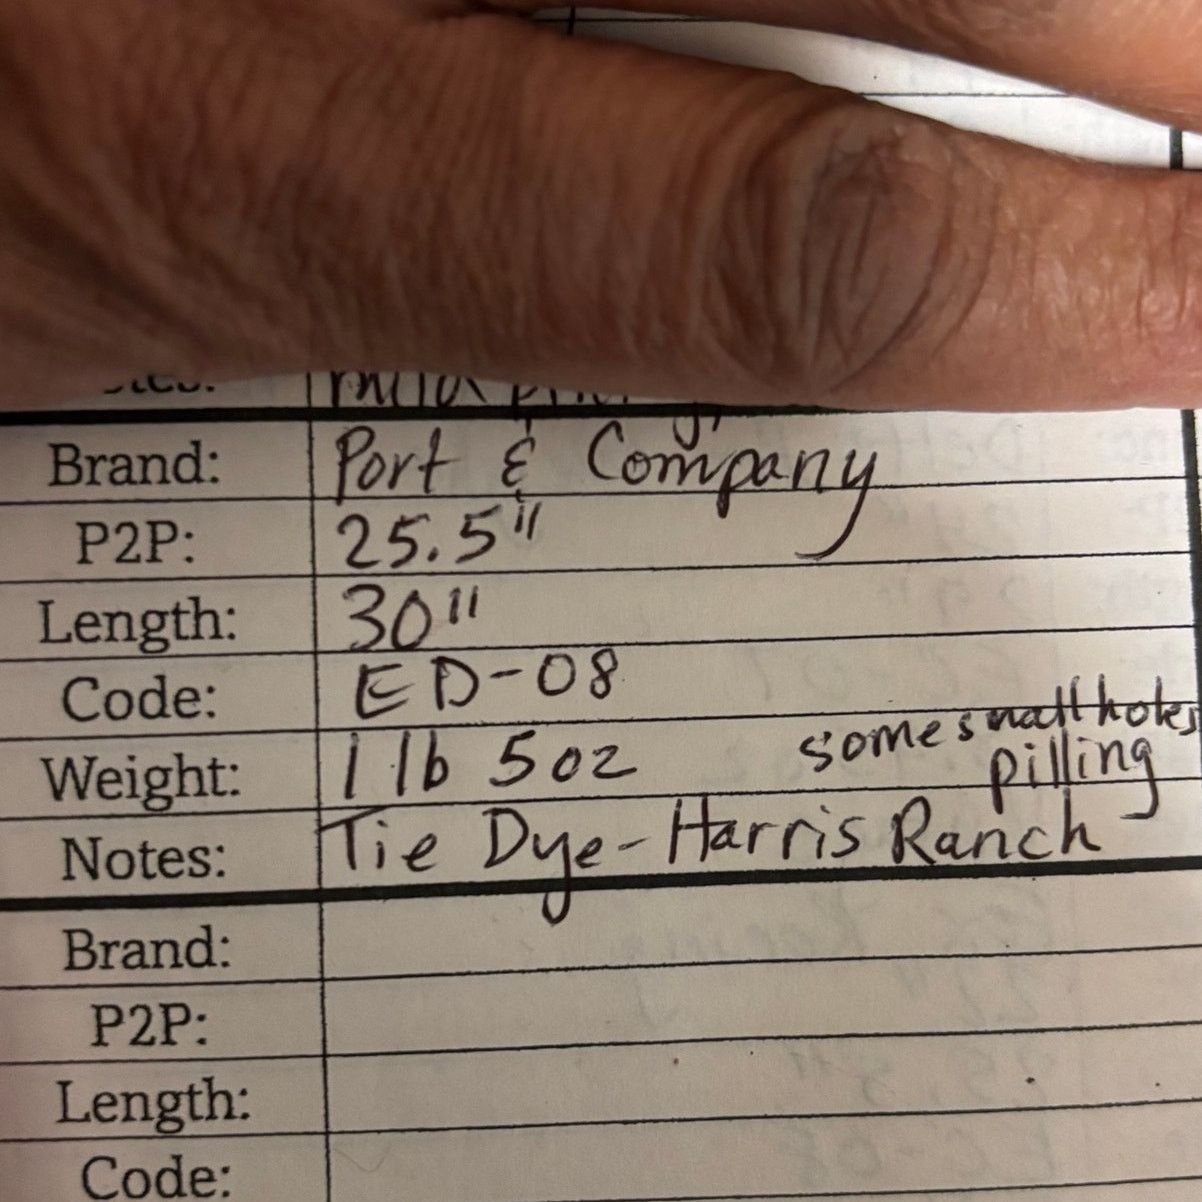 Brand: Port & Company
P2P: 25.5"
Length: 30"
Code: ED-08
Weight: 1 lb 5oz some small holes
pilling
Notes: Tie Dye-Harris Ranch
Brand:
P2P:
Length:
Code: